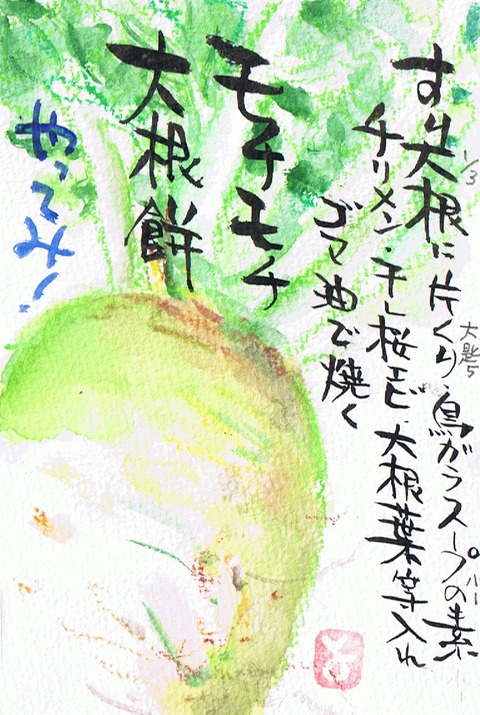 すり大根に片くり・鳥ガラスープの素
1/3
大匙5
チリメン・干し桜エビ・大根葉等入れ
ゴマ油で焼く
モチモチ
大根餅
やってみ!